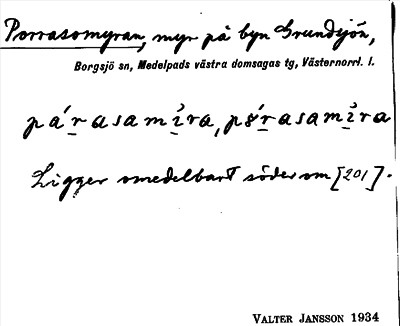 Porrasomyran, myr på byn Grundsjön,
Borgsjö sn, Medelpads västra domsagas tg, Västernorrl. l.
pá'r̲asami̲ra, pǿ'r̲asami̲ra
Ligger omedelbart söder om [201].
VALTER JANSSON 1934